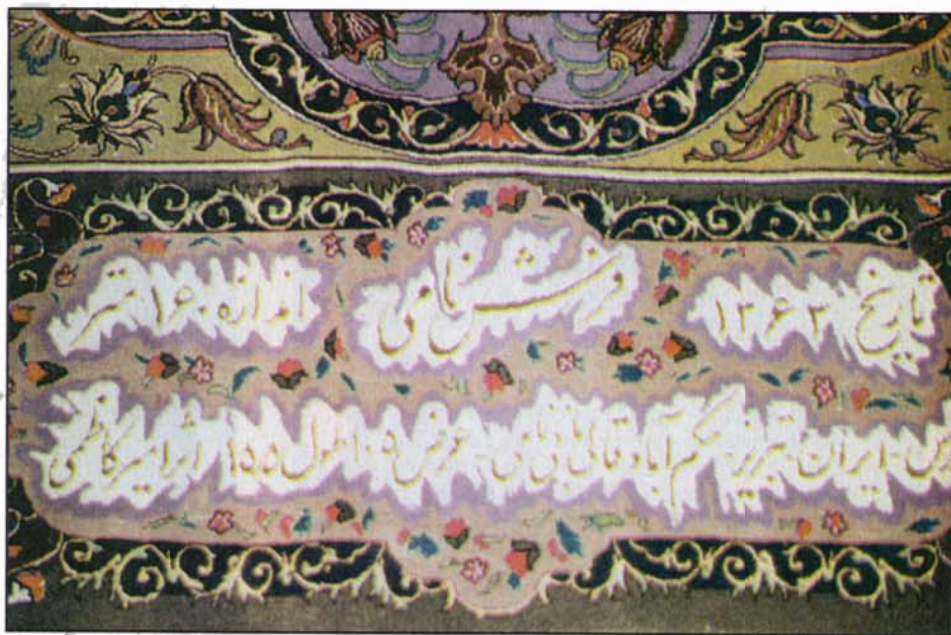 تاریخ ۱۳۶۳ فرش نامی اندازه ۱۶ متر
ایران تبریز حکم آباد قالی بافی عرض ۱۰۵ طول ۱۵۵ اثر امیر کاظمی